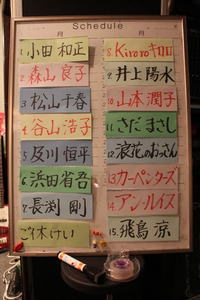 Schedule
月 月
1. 小田 和正
2. 森山 良子
3 松山 千春
4. 谷山 浩子
5 及川 恒平
6. 浜田 省吾
7. 長渕 剛
8. Kiroro キロロ
9. 井上 陽水
10 山本 潤子
11. さだ まさし
12. 浪花のおっさん
13 カーペンターズ
14 アン・ルイス
15. 飛鳥 涼